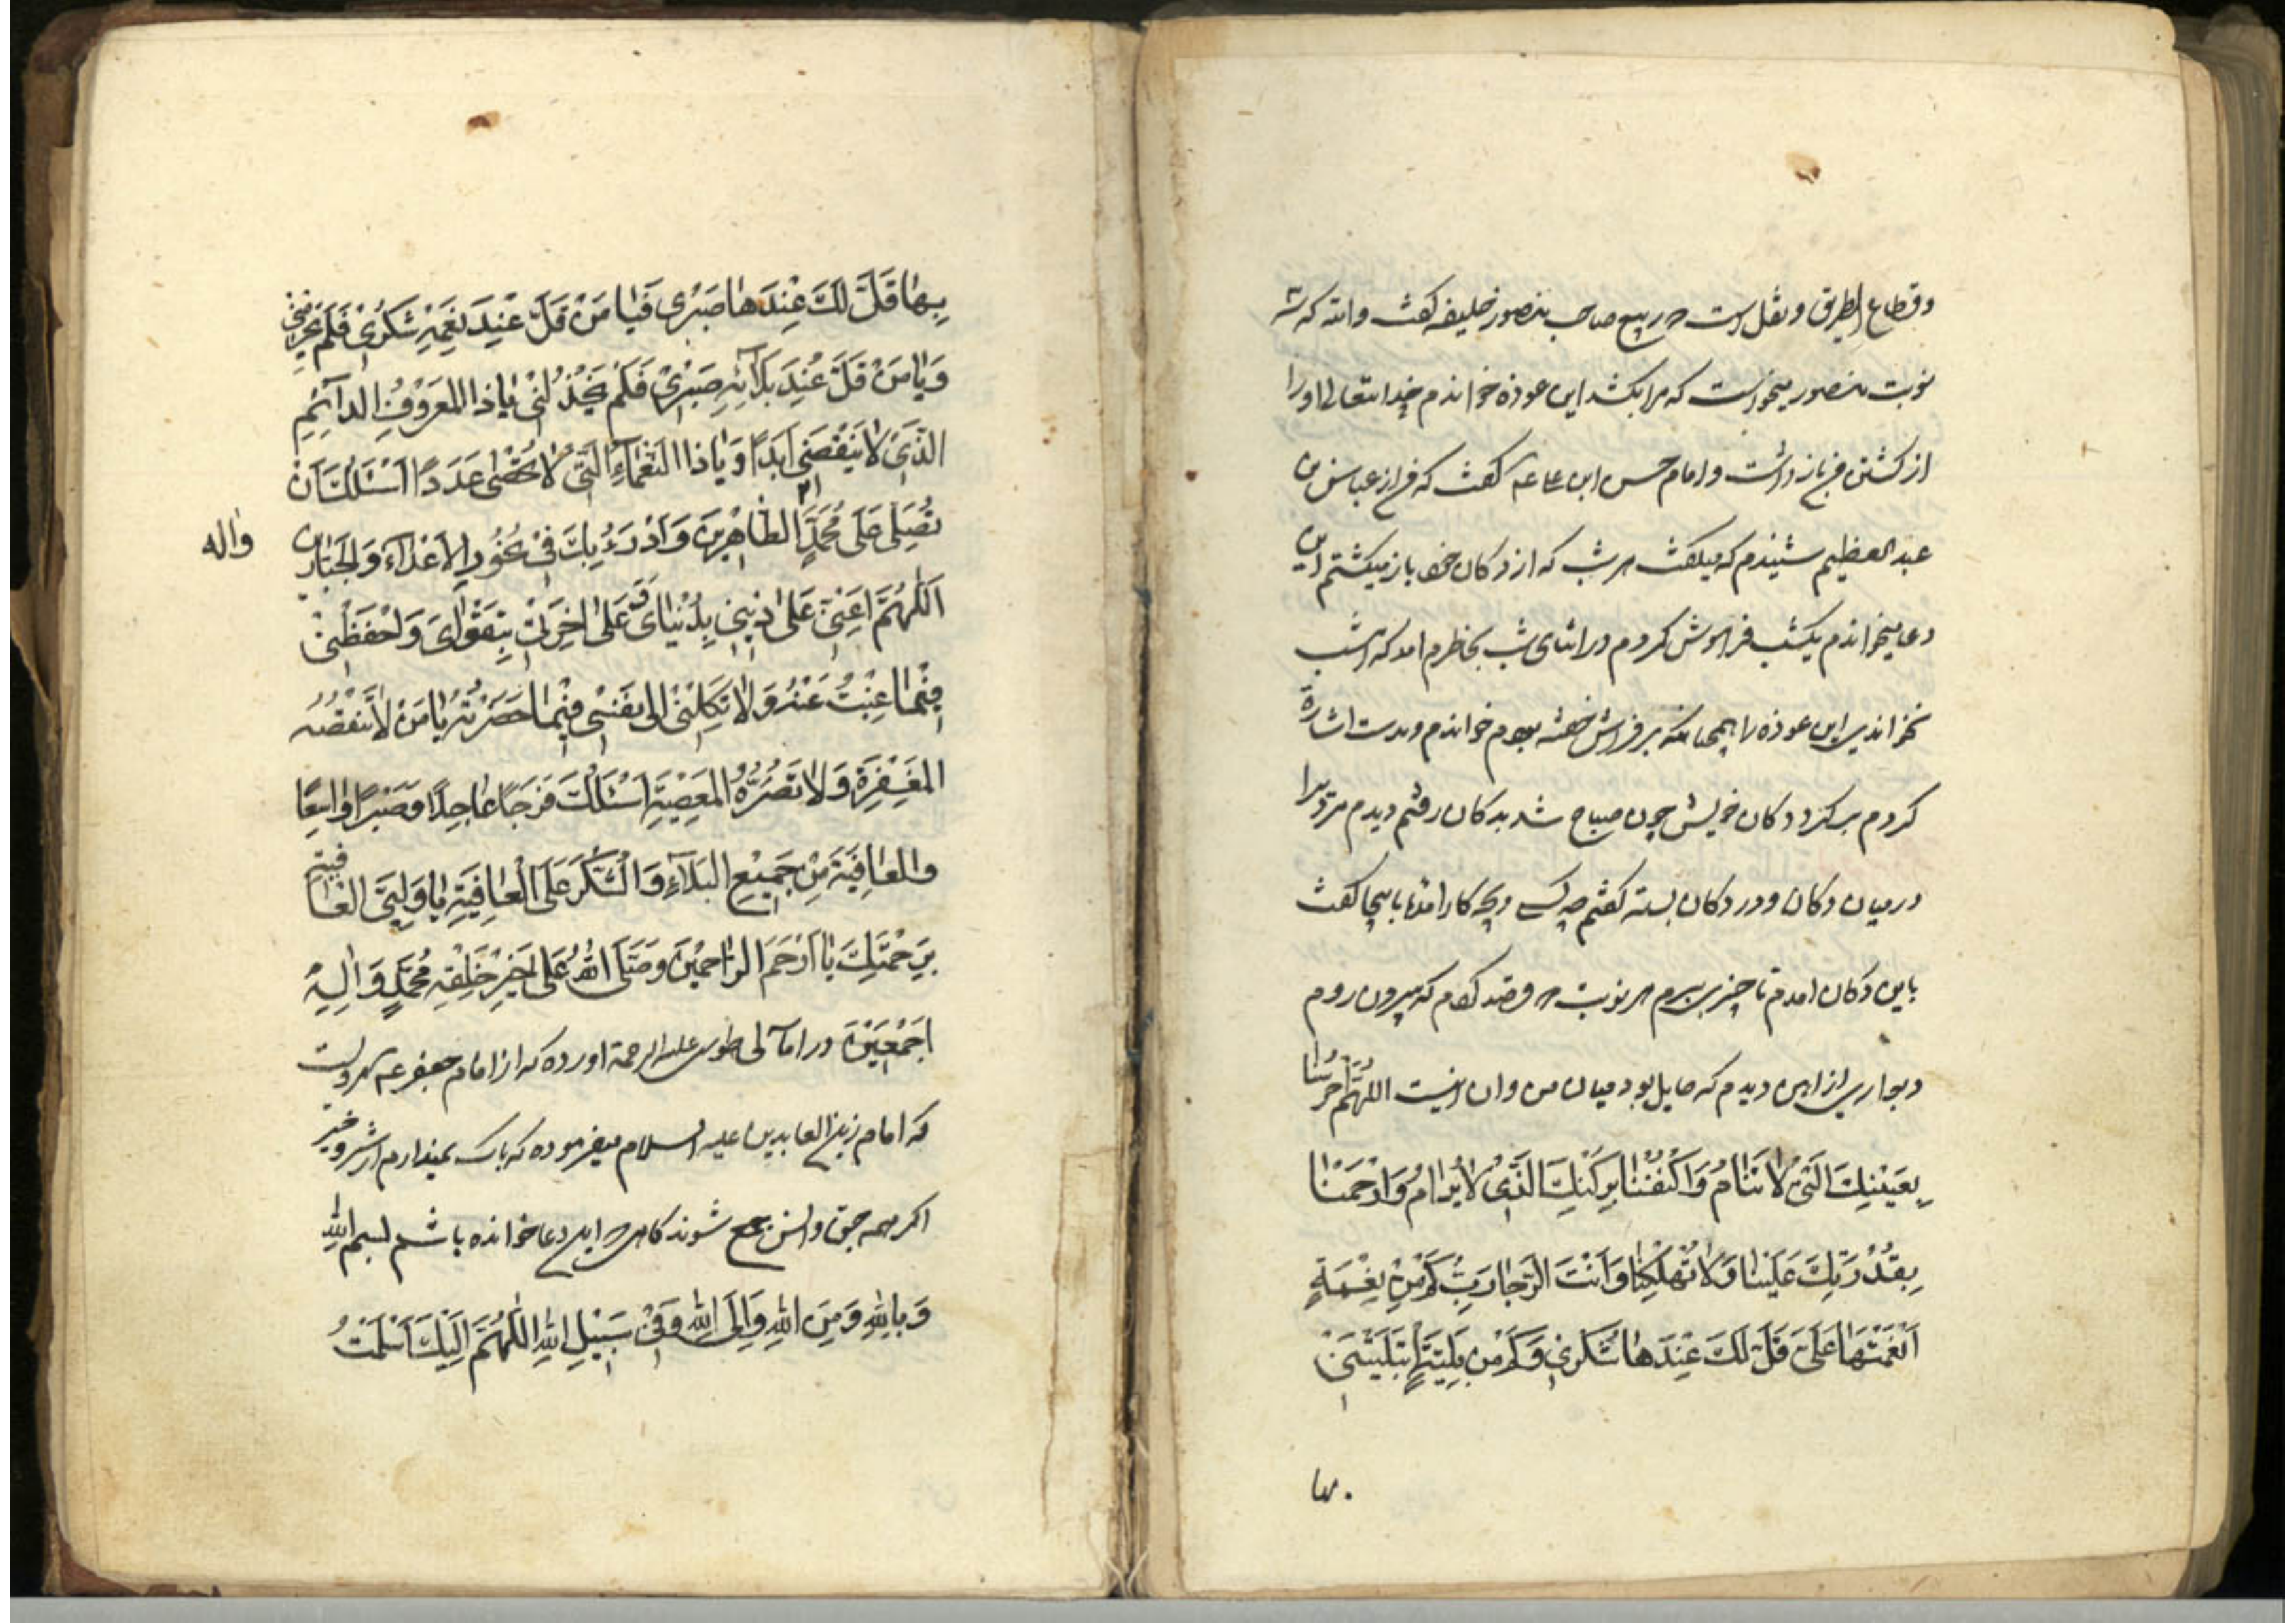 وقطاع الطریق ونقل است که ربیع صاحب منصور خلیفه گفت والله که سه
نوبت منصور میخواست که مرا بکشد این عوذه خواندم خدا تعالی اورا
از کشتن من باز داشت وامام حسن ابن علی ع گفت که من از عباس بن
عبد العظیم شنیدم که میگفت هر شب که از دکان خود باز میگشتم این
دعا میخواندم یکشب فراموش کردم در اثنای شب بخاطرم امد که امشب
نخواندم پس این عوذه را همچنانکه بر فراش خفته بودم خواندم وبدست اشارة
کردم بر گرد دکان خویش چون صباح شد بدکان رفتم دیدم مردیرا
در میان دکان ودر دکان بسته گفتم چه کسی وبچه کار امدۀ باینجا گفت
باین دکان امدم تا چیزی ببرم هر نوبت که قصد کردم که بیرون روم
دیواری از اهن دیدم که حایل بود میان من وان اینست اَللّهُمَّ احْرُسْنا
بِعَیْنِكَ الَّتی لاٰ تَنٰامُ وَاكْنُفْنٰا بِرُكْنِكَ الَّذی لاٰ یُرٰامُ وَارْحَمْنٰا
بِقُدْرَتِكَ عَلَیْنٰا وَلاٰ تُهْلِكْنٰا وَاَنْتَ الرَّجٰا رَبِّ كَمْ مِنْ نِعْمَةٍ
اَنْعَمْتَهٰا عَلَیَّ قَلَّ لَكَ عِنْدَهٰا شُكْری وَكَمْ مِنْ بَلِیَّةٍ ابْتَلَیْتَنی
بِهٰا قَلَّ لَكَ عِنْدَهٰا صَبْری فَیٰا مَنْ قَلَّ عِنْدَ نِعَمِهِ شُكْری فَلَمْ یَحْرِمْنی
وَیٰا مَنْ قَلَّ عِنْدَ بَلاٰئِهِ صَبْری فَلَمْ یَخْذُلْنی یٰا ذَا الْمَعْرُوفِ الدّٰآئِمِ
الَّذی لاٰ یَنْقَضی اَبَدًا وَیٰا ذَا النَّعْمٰآءِ الَّتی لاٰ تُحْصٰی عَدَدًا اَسْئَلُكَ اَنْ
تُصَلِّیَ عَلٰی مُحَمَّدٍ الطّٰاهِرینَ وَاَدْرَءُ بِكَ فی نُحُورِ الاَعْدٰآءِ وَالْجَبّٰارین
واله
اَللّٰهُمَّ اَعِنّی عَلٰی دینی بِدُنْیٰایَ وَعَلٰی اٰخِرَتی بِتَقْوٰایَ وَاحْفَظْنی
فیمٰا غِبْتُ عَنْهُ وَلاٰ تَكِلْنی اِلٰی نَفْسی فیمٰا حَضَرْتُهُ یٰا مَنْ لاٰ تَنْقُصُهُ
الْمَغْفِرَةُ وَلاٰ تَضُرُّهُ الْمَعْصِیَةُ اَسْئَلُكَ فَرَجًا عٰاجِلاً وَصَبْرًا وٰاسِعًا
وَالْعٰافِیَةَ مِنْ جَمیعِ الْبَلاٰءِ وَالشُّكْرَ عَلَی الْعٰافِیَةِ یٰا وَلِیَّ الْعٰافِیَةِ
بِرَحْمَتِكَ یٰا اَرْحَمَ الرّٰاحِمینَ وَصَلَّی اللهُ عَلٰی خَیْرِ خَلْقِهِ مُحَمَّدٍ وَاٰلِهِ
اَجْمَعینَ در امالی طوسی علیه الرحمة اورده که از امام جعفر ع مرویست
که امام زین العابدین علیه السلام میفرموده که باك نمیدارم از شر وخیر
اكر همه جن وانس جمع شوند كاهی که این دعا خوانده باشم بسم الله
وَبِاللهِ وَمِنَ اللهِ وَاِلَی اللهِ وَفی سَبیلِ اللهِ اَللّٰهُمَّ اِلَیْكَ اَسْلَمْتُ